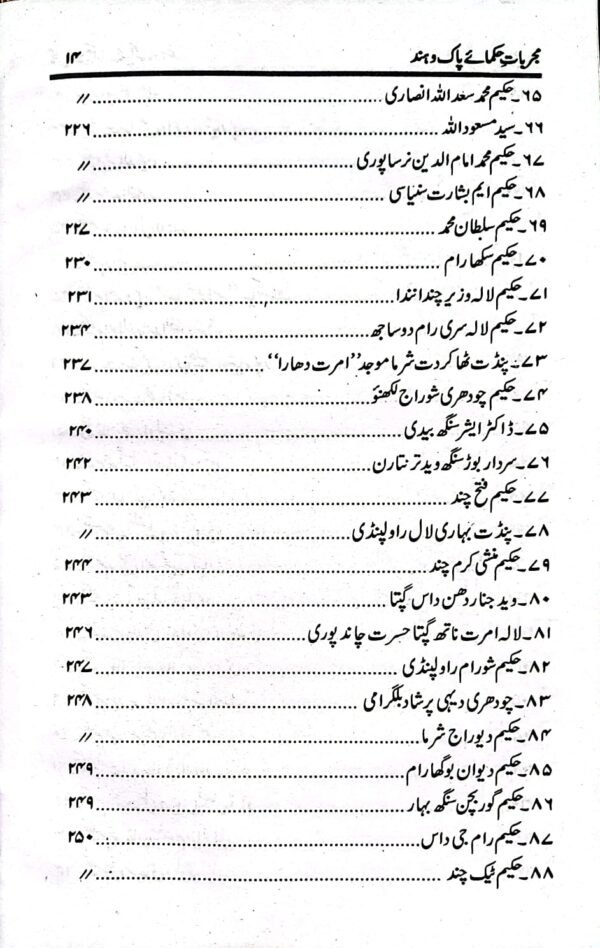 مجرباتِ حکمائے پاک و ہند ۱۴
۶۵۔حکیم محمد سعد اللہ انصاری.......................................................〃
۶۶۔سید مسعود اللہ.......................................................۲۲۶
۶۷۔حکیم محمد امام الدین نرساپوری.......................................................〃
۶۸۔حکیم ایم بشارت سنیاسی.......................................................〃
۶۹۔حکیم سلطان محمد.......................................................۲۲۷
۷۰۔حکیم سکھا رام.......................................................۲۳۰
۷۱۔حکیم لالہ وزیر چندانندا.......................................................۲۳۱
۷۲۔حکیم لالہ سری رام دوساجھ.......................................................۲۳۴
۷۳۔پنڈت ٹھاکر دت شرما موجد ’’امرت دھارا‘‘.......................................................۲۳۷
۷۴۔حکیم چودھری شوراج لکھنؤ.......................................................۲۳۸
۷۵۔ڈاکٹر ایشر سنگھ بیدی.......................................................۲۴۰
۷۶۔سردار بوڑ سنگھ وید ترنتارن.......................................................۲۴۲
۷۷۔حکیم فتح چند.......................................................۲۴۳
۷۸۔پنڈت بہاری لال راولپنڈی.......................................................〃
۷۹۔حکیم منشی کرم چند.......................................................۲۴۴
۸۰۔وید جناردھن داس گپتا.......................................................۲۴۳
۸۱۔لالہ امرت ناتھ گپتا حسرت چاند پوری.......................................................۲۴۶
۸۲۔حکیم شورام راولپنڈی.......................................................۲۴۷
۸۳۔چودھری دیبی پرشاد بلگرامی.......................................................۲۴۸
۸۴۔حکیم دیوراج شرما.......................................................〃
۸۵۔حکیم دیوان بوگھارام.......................................................۲۴۹
۸۶۔حکیم گوربچن سنگھ بہار.......................................................۲۴۹
۸۷۔حکیم رام جی داس.......................................................۲۵۰
۸۸۔حکیم ٹیک چند.......................................................〃